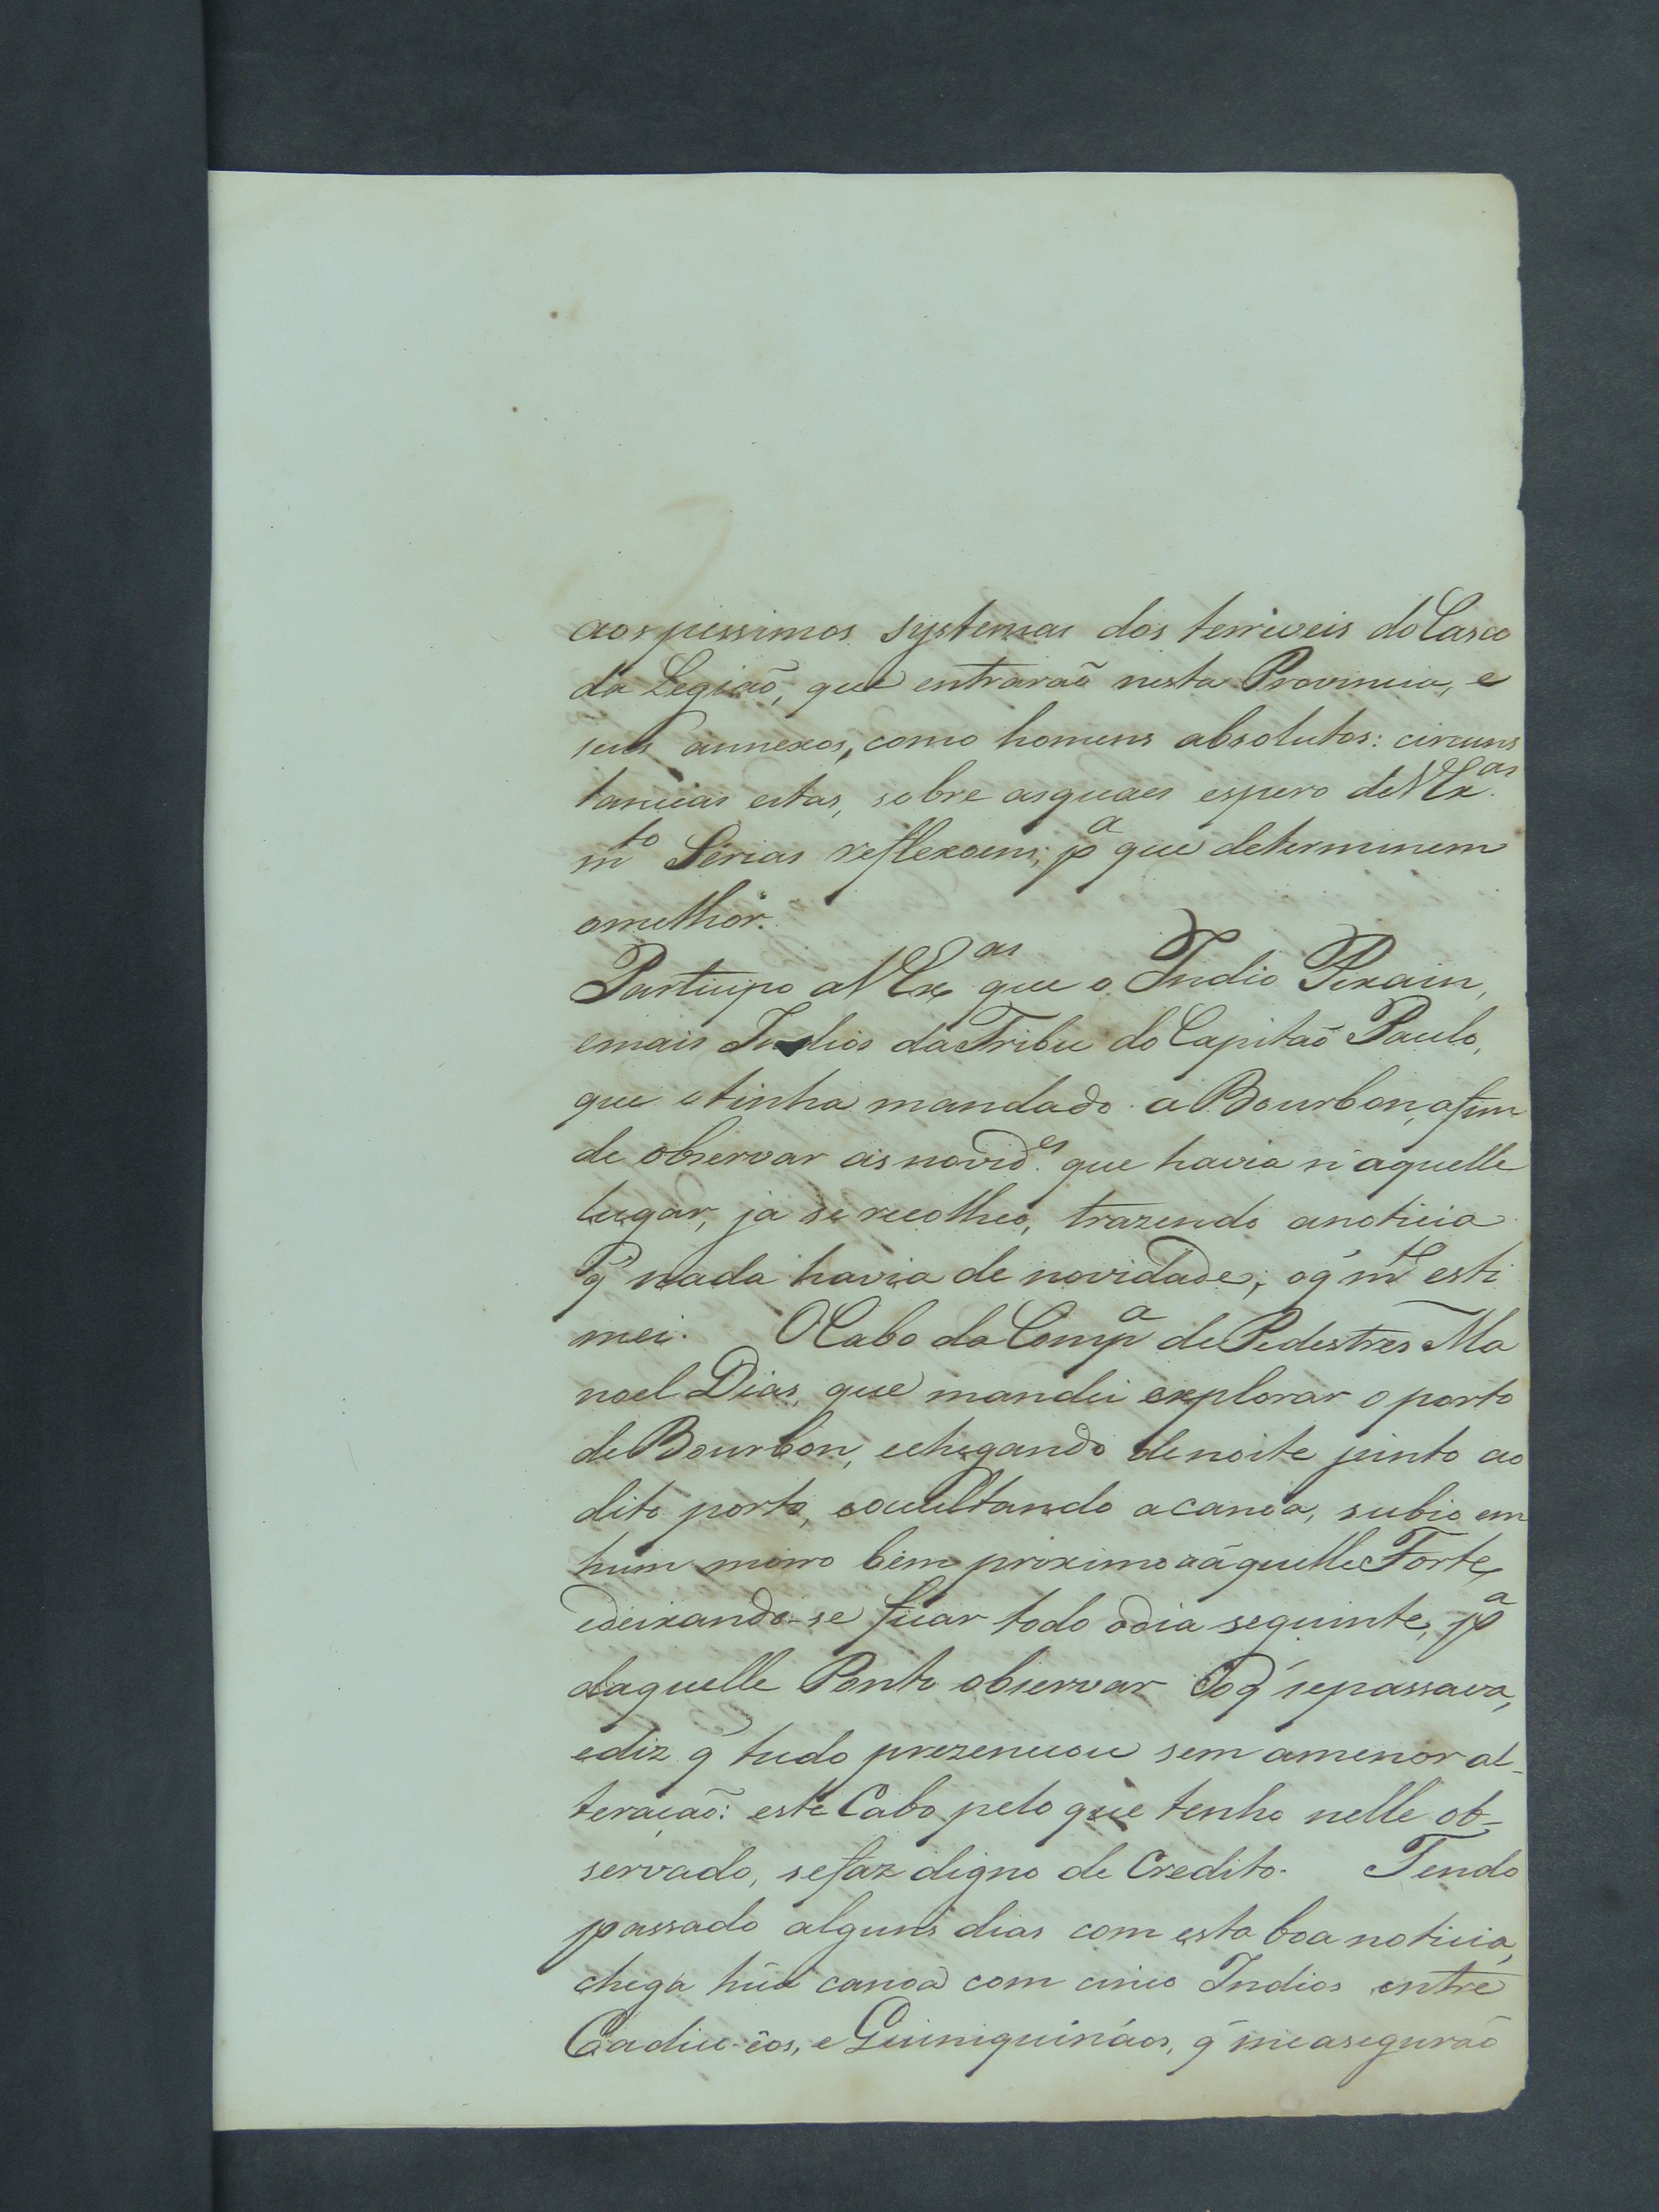 aos pessimos systemas dos terriveis do Casco
da Legiaõ, que entraraõ nesta Provincia, e
seus annexos, como homens absolutos: circuns
tancias estas, sobre as quaes espero de V Ex.as
mto Sérias reflexoens; pa que determinem
o melhor.
Participo a V Exas que o Indio Pixain,
e mais Indios da Tribu do Capitaõ Paulo,
que o tinha mandado a Bourbon, afim
de observar as novid.es que havia n'aquelle
lugar, já se recolheo, trazendo a noticia
q' nada havia de novidade; o q' mto esti
mei. O Cabo da Compa de Pedestres Ma
noel Dias, que mandei explorar o porto
de Bourbon, e chegando de noite junto ao
dito porto, e ocultando a canoa, subio em
hum morro bem proximo a áquelle Forte,
e deixando-se ficar todo o dia seguinte, pa
daquelle Ponto observar o q' se passava,
e diz q' tudo prezenciou sem a menor al-
teraçaõ: este Cabo pelo que tenho nelle ob-
servado, se faz digno de Credito. Tendo
passado alguns dias com esta boa noticia,
chega hũa canoa com cinco Indios entre
Cadiu-éos, e Guiniquináos, q' me asegurão